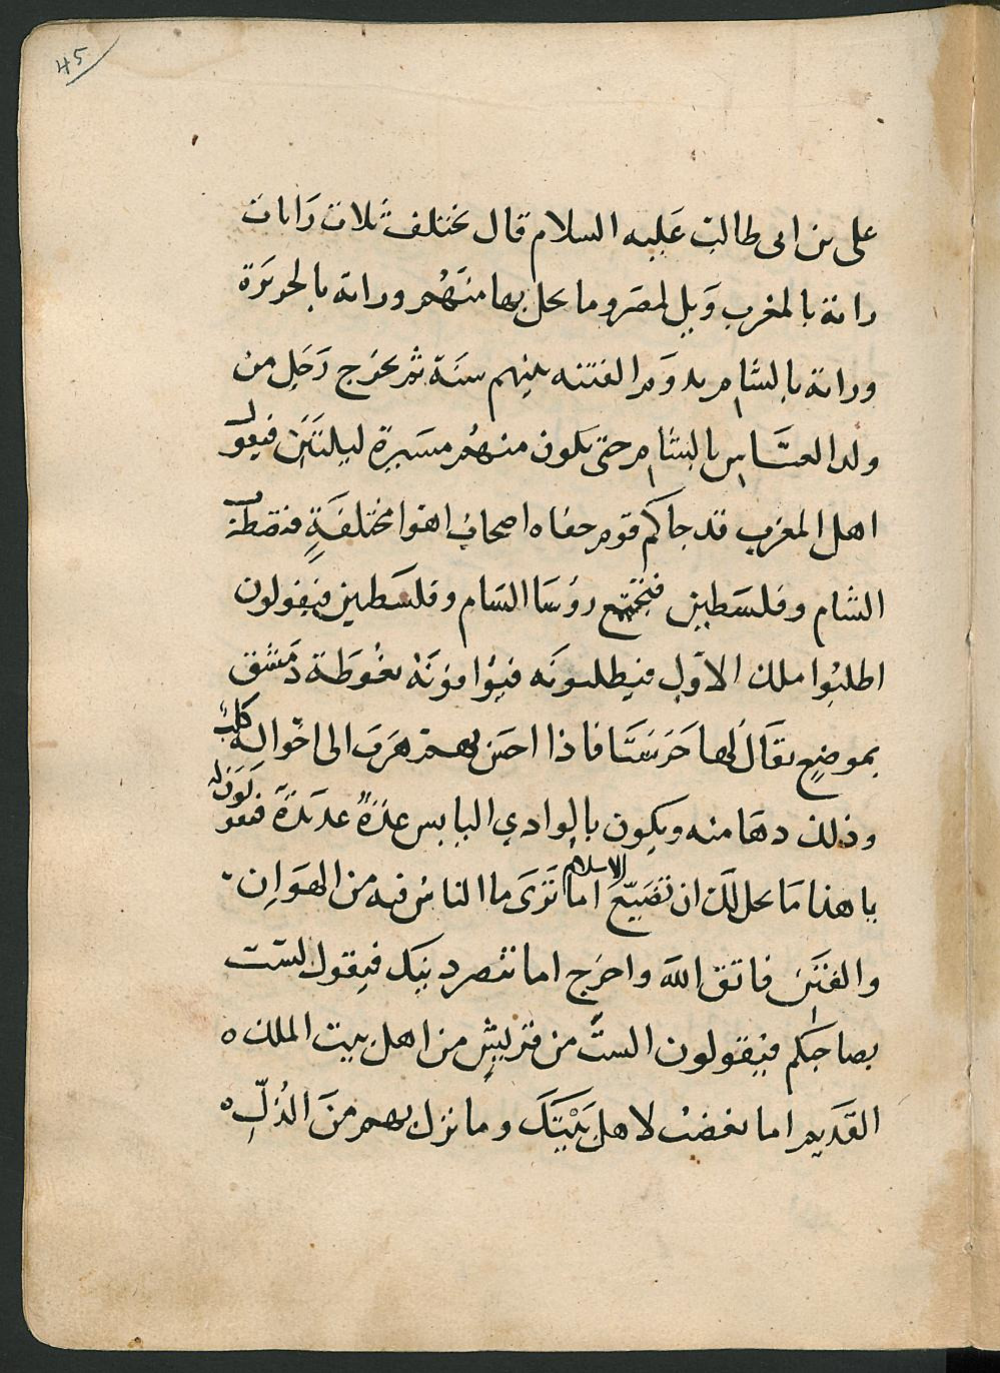 45
على بن ابى طالب عَليه السلام قال تختلف ثلاث رَايات
راية بالمغرب وَيل لمصَر وما يحل بها منهُم وراية بالجزيرَة
وراية بالشام يدوَم الفتنه بينهم سنَة ثم يخرَج رَجَل من
ولد العبَّاس بالشام حتى يكون منهُم مسَيرة ليلتَين فيقول
اهل المغرب قد جاكم قوم حفاه اصحاب اهوا مختلفَةٍ فتضطرب
الشام وفلسَطين فيجتمع روُسَا الشام وفلسَطين فيقولون
اطلبُوا ملك الاوّل فيطلبونَه فيُوافونَهْ بغُوطَة دمَشق
بموضعٍ يقَال لها حَرَسَتَا فاذا احسَ بهم هَرَبَ الى اخوَاله كلب
وذلك دهَا منه ويكون بالوادي اليابس عدّةً عديَدَةً فيقولون له
يا هذا مَا يحل لكَ ان تضيّعَ الاسلام اما تَرَى ما الناسُ فيه من الهوَانِ
والفتَن فاتق اللهَ واخرَج اما تنصر دينَك فيقول لسَت
بصاحبكم فيقولون الستَ من قريشٍ من اهل بيت الملك ه
القَديم اما تغضبُ لاهل بَيْتَكَ وما نزل بهم منَ الذُلِّ ه